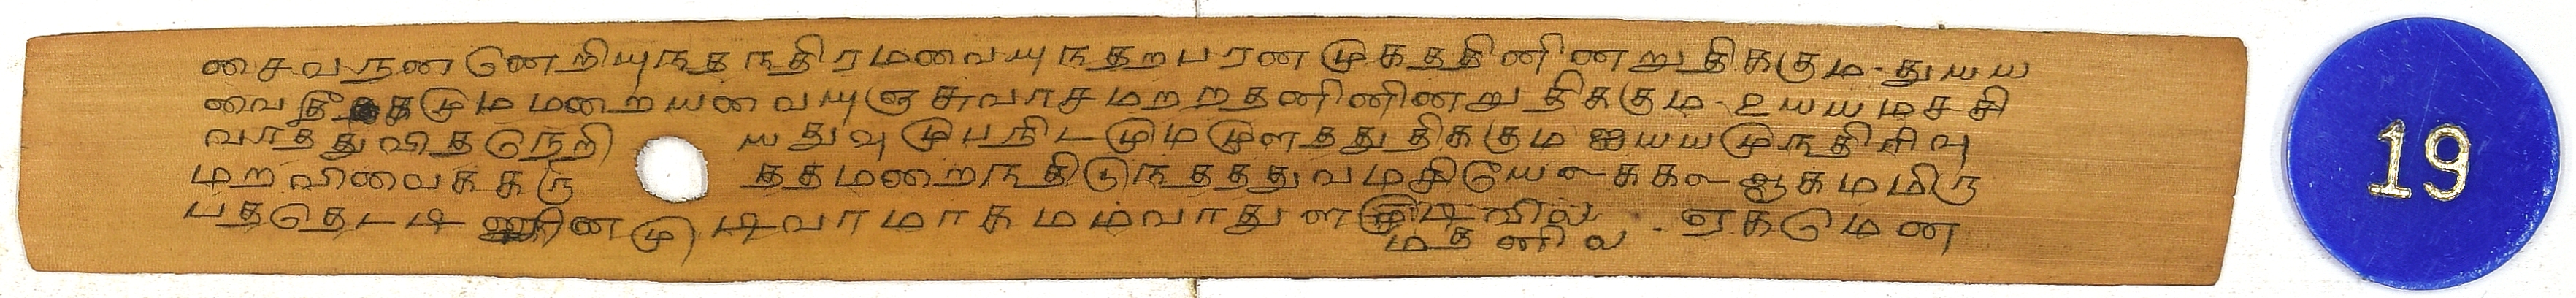 சைவநன னெறியுநத நதிரமவையு நதறபரன முகததினினறுதிககும-துயய
வை முமமறையவையுஞ சுவாசமறறதனினினறுதிககும-உயயமசசி
வாததுவிதநெறி யதுவு முபநிடமுமமுளதது திககும ஐயயமுநதிளிவு
மறவிவைககரு ததமறைநதிடுநததத்துவமசியே௳ககஉ ஆகமமிரு
பததெடடி னினமுடிவாமாகமம்வாதுள வில - ஏகமென
மதனில
19